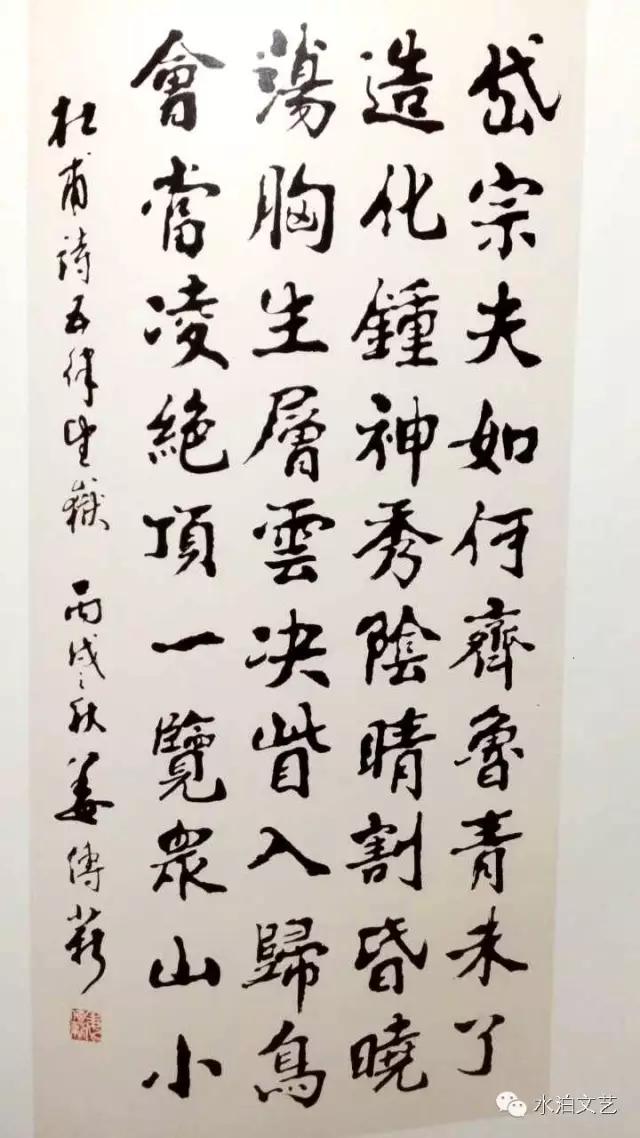 岱宗夫如何齊魯青未了
造化鍾神秀陰晴割昏曉
蕩胸生層雲决眥入歸鳥
會當凌絶頂一覽衆山小
杜甫詩五律望嶽 丙戌秋姜傳薪
水泊文艺